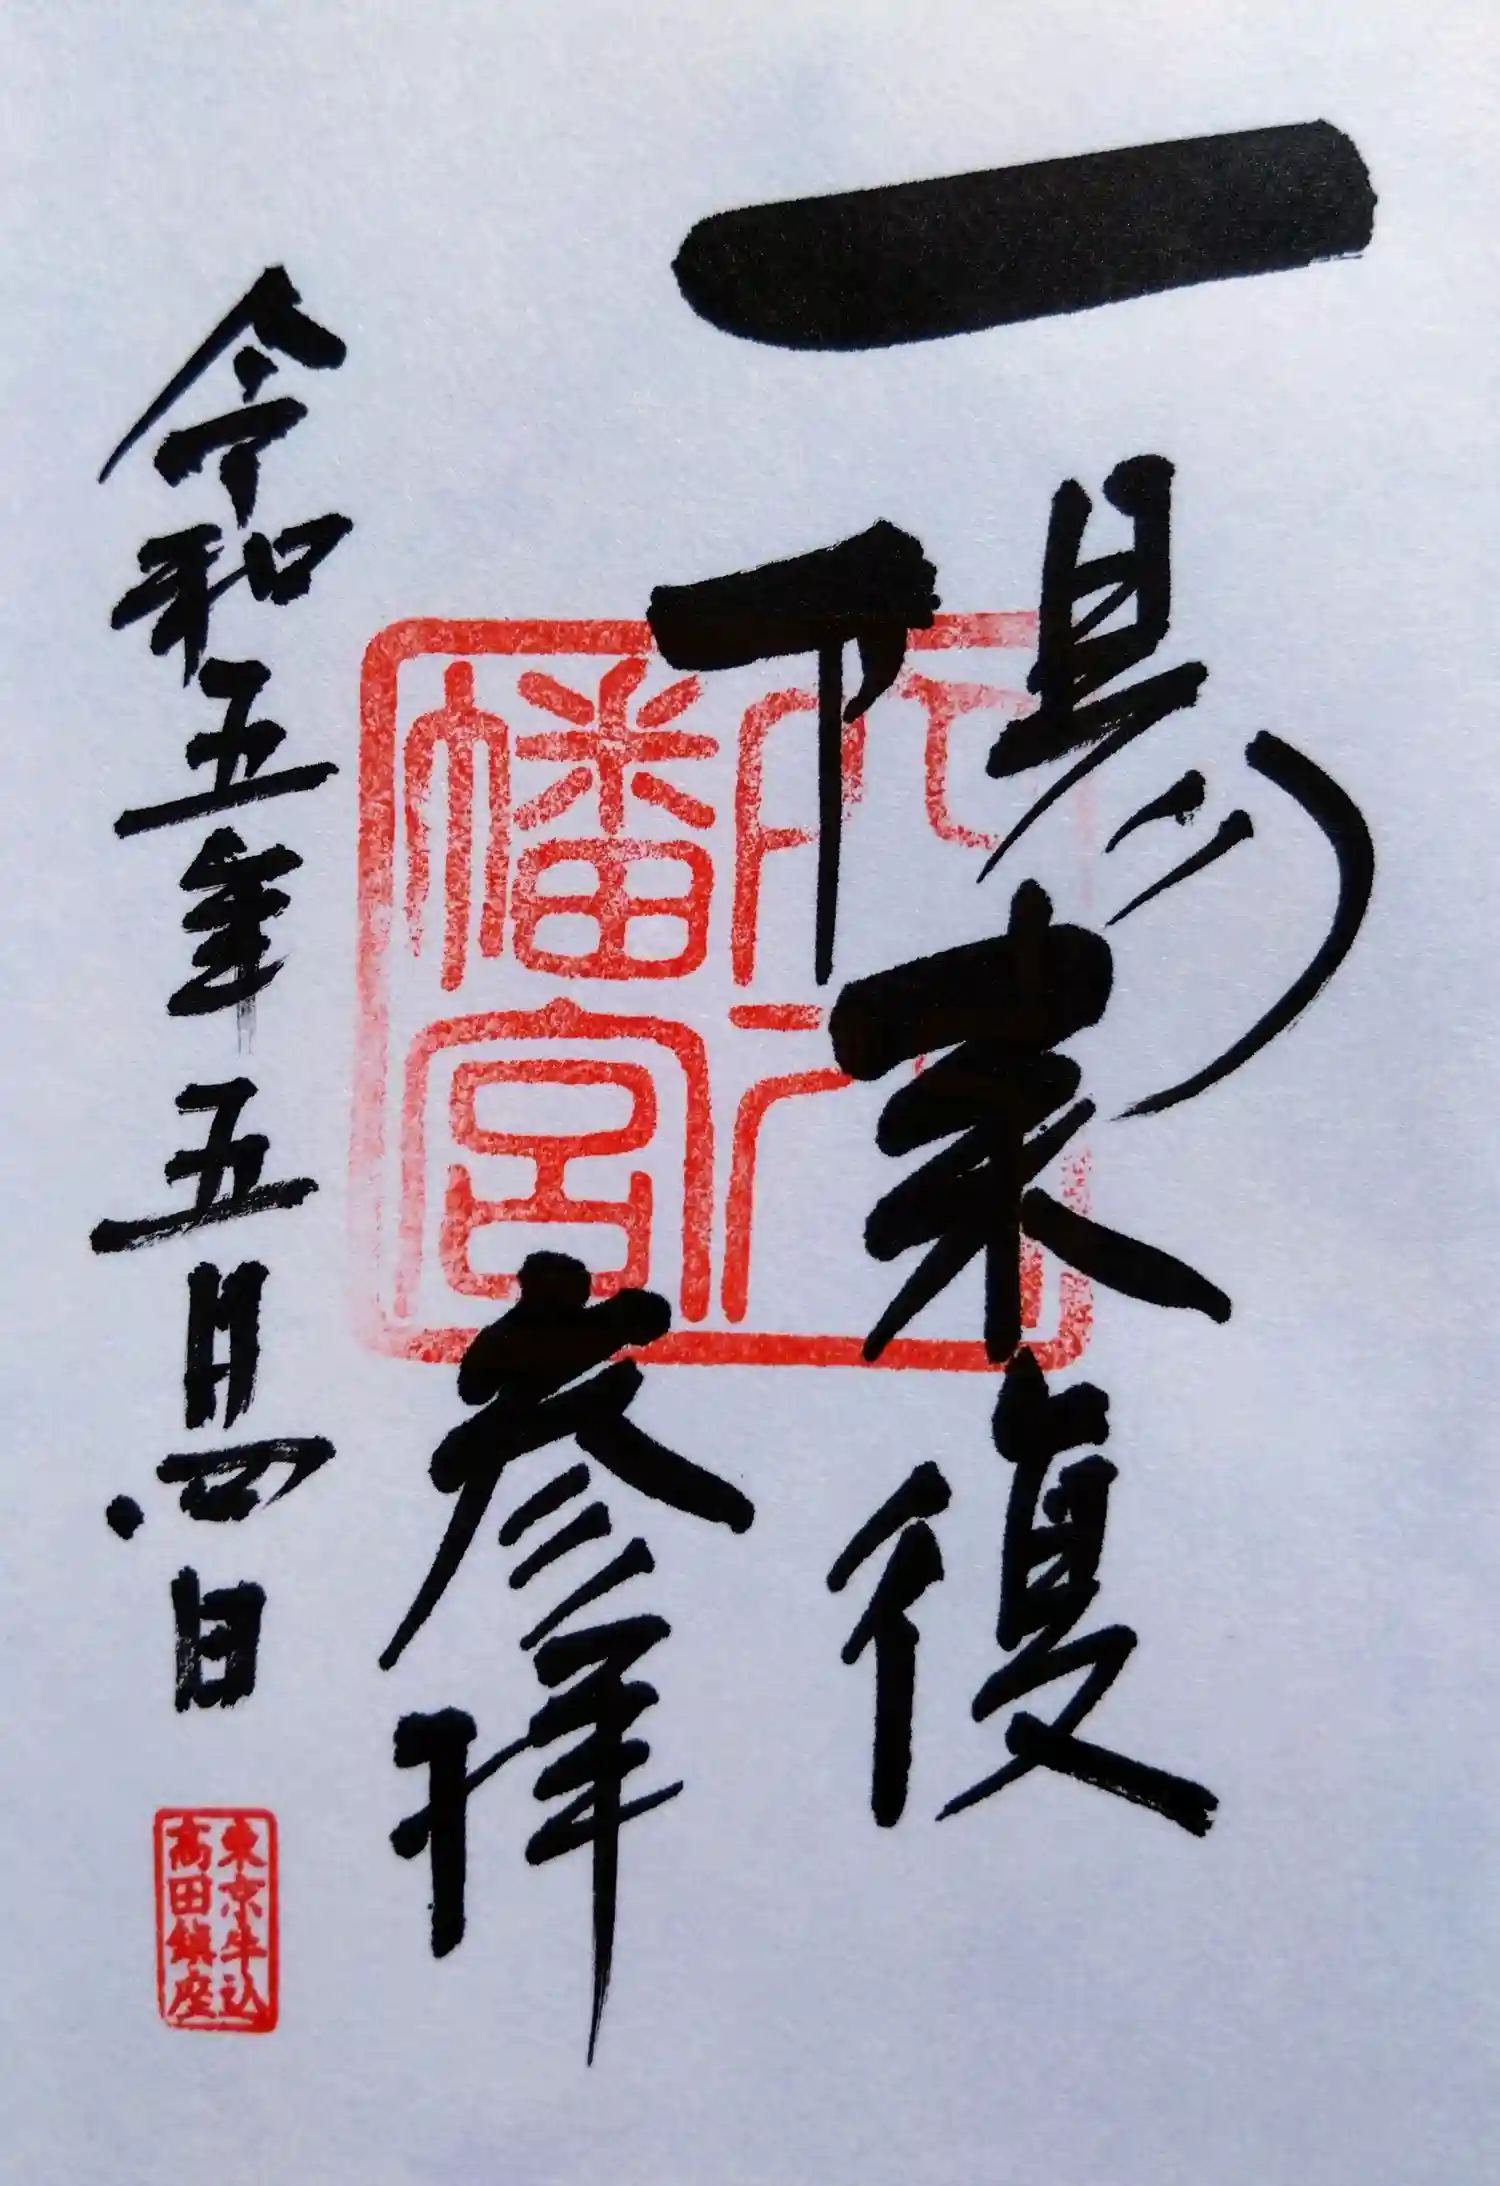 一陽来復
参拝
令和五年五月四日
穴八幡宮
東京牛込
高田鎮座